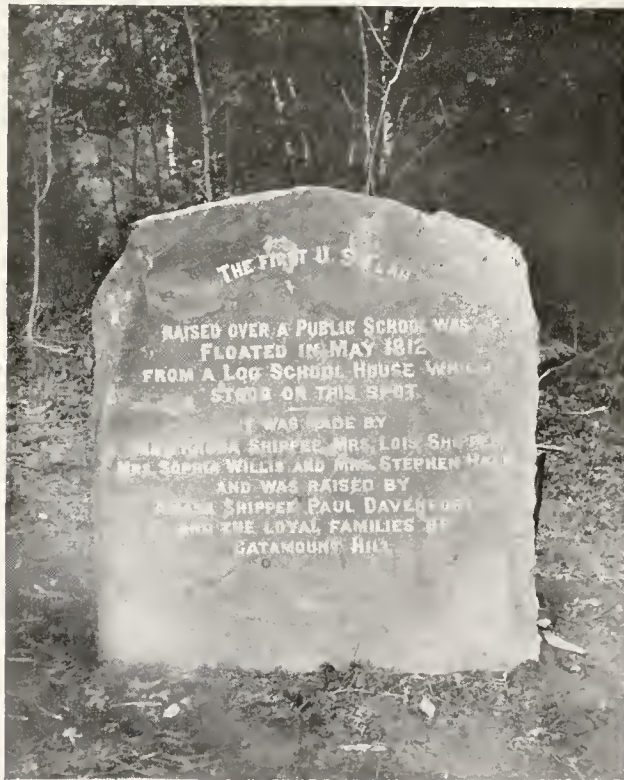 THE FIRST U. S. FLAG
RAISED OVER A PUBLIC SCHOOL WAS
FLOATED IN MAY 1812
FROM A LOG SCHOOL HOUSE WHICH
STOOD ON THIS SPOT
IT WAS MADE BY
SHIPPEE MRS. LOIS SHIPPEE
MRS. SOPHIA WILLIS AND MRS. STEPHEN
AND WAS RAISED BY
SHIPPEE PAUL DAVENPORT
AND THE LOYAL FAMILIES OF
CATAMOUNT HILL